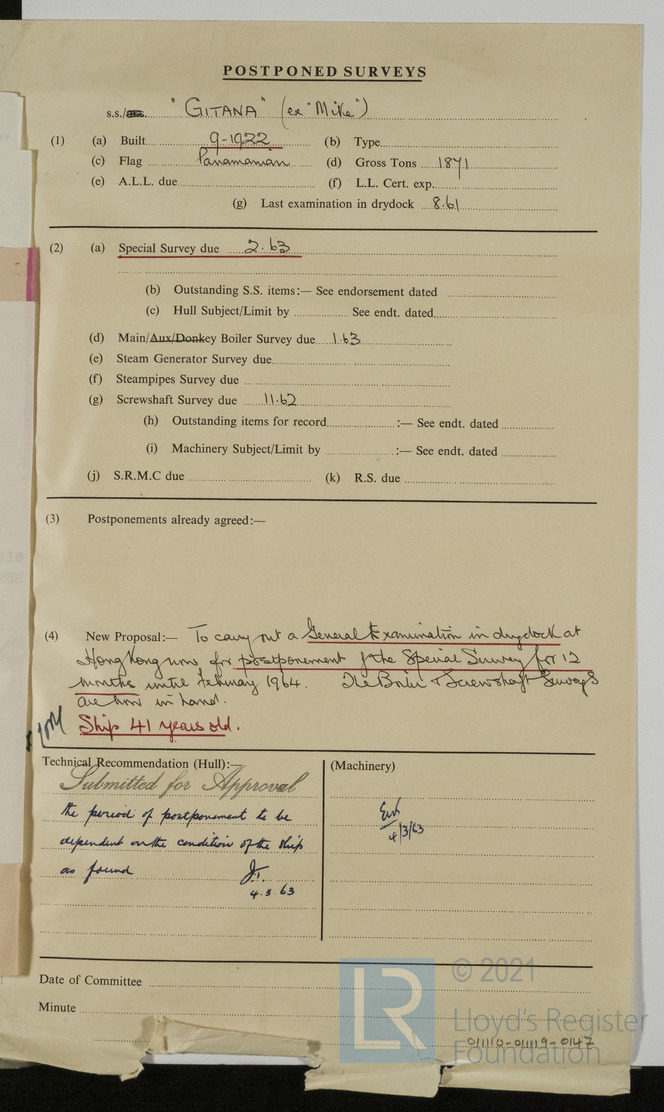 POSTPONED SURVEYS
s.s./m.s. "GITANA" (ex "Mike")
(1) (a) Built 9-1922 (b) Type
(c) Flag Panamanian (d) Gross Tons 1871
(e) A.L.L. due (f) L.L. Cert. exp.
(g) Last examination in drydock 8.61
(2) (a) Special Survey due 2.63
(b) Outstanding S.S. items:— See endorsement dated
(c) Hull Subject/Limit by See endt. dated
(d) Main/Aux/Donkey Boiler Survey due 1.63
(e) Steam Generator Survey due
(f) Steampipes Survey due
(g) Screwshaft Survey due 11.62
(h) Outstanding items for record :— See endt. dated
(i) Machinery Subject/Limit by :— See endt. dated
(j) S.R.M.C due (k) R.S. due
(3) Postponements already agreed:—
(4) New Proposal:— To carry out a General Examination in drydock at
Hong Kong now for postponement of the Special Survey for 12
months until February 1964. The Boiler & Screwshaft Surveys
are now in hand.
Ship 41 years old.
Technical Recommendation (Hull):— (Machinery)
Submitted for Approval
the period of postponement to be
dependent on the condition of the ship
as found
4.3.63
4/3/63
Date of Committee
Minute
© 2021
LR
Lloyd's Register
Foundation
01110-01119-0147